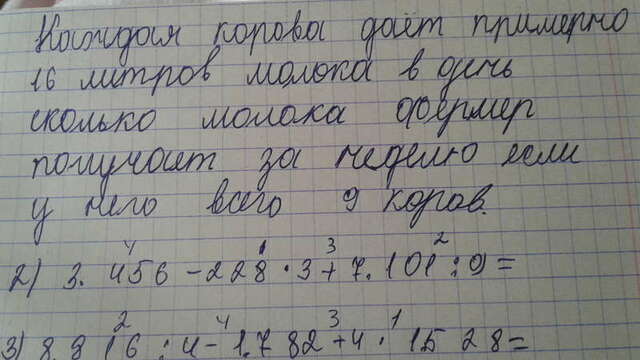 Каждая корова даёт примерно
16 литров молока в день
сколько молока фермер
получает за неделю если
у него всего 9 коров.
4 1 3 2
2) 3. 456 - 228 · 3 + 7. 101 : 9 =
2 4 3 1
3) 8. 9 16 : 4 - 1.7 82 + 4 · 15 28 =